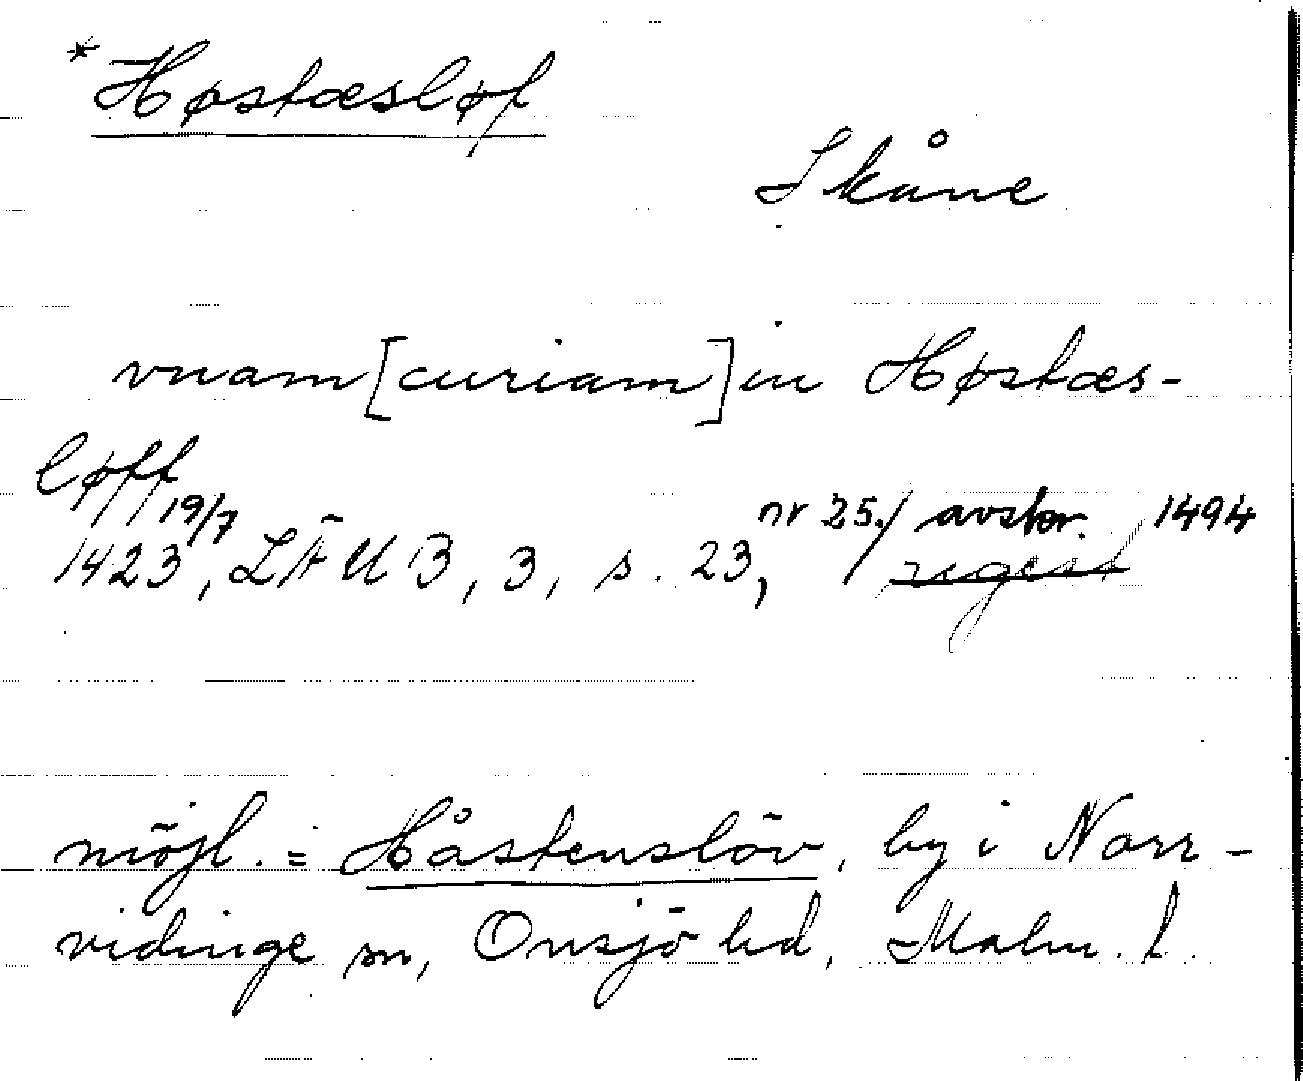 *Høstæsløf
Skåne
vnam [curiam] in Høstæs-
løff
1423 19/7, LÄUB, 3, s. 23, nr 25./ avskr. 1494
regest
möjl. = Håstenslöv, by i Norr-
vidinge sn, Onsjö hd, Malm. l.